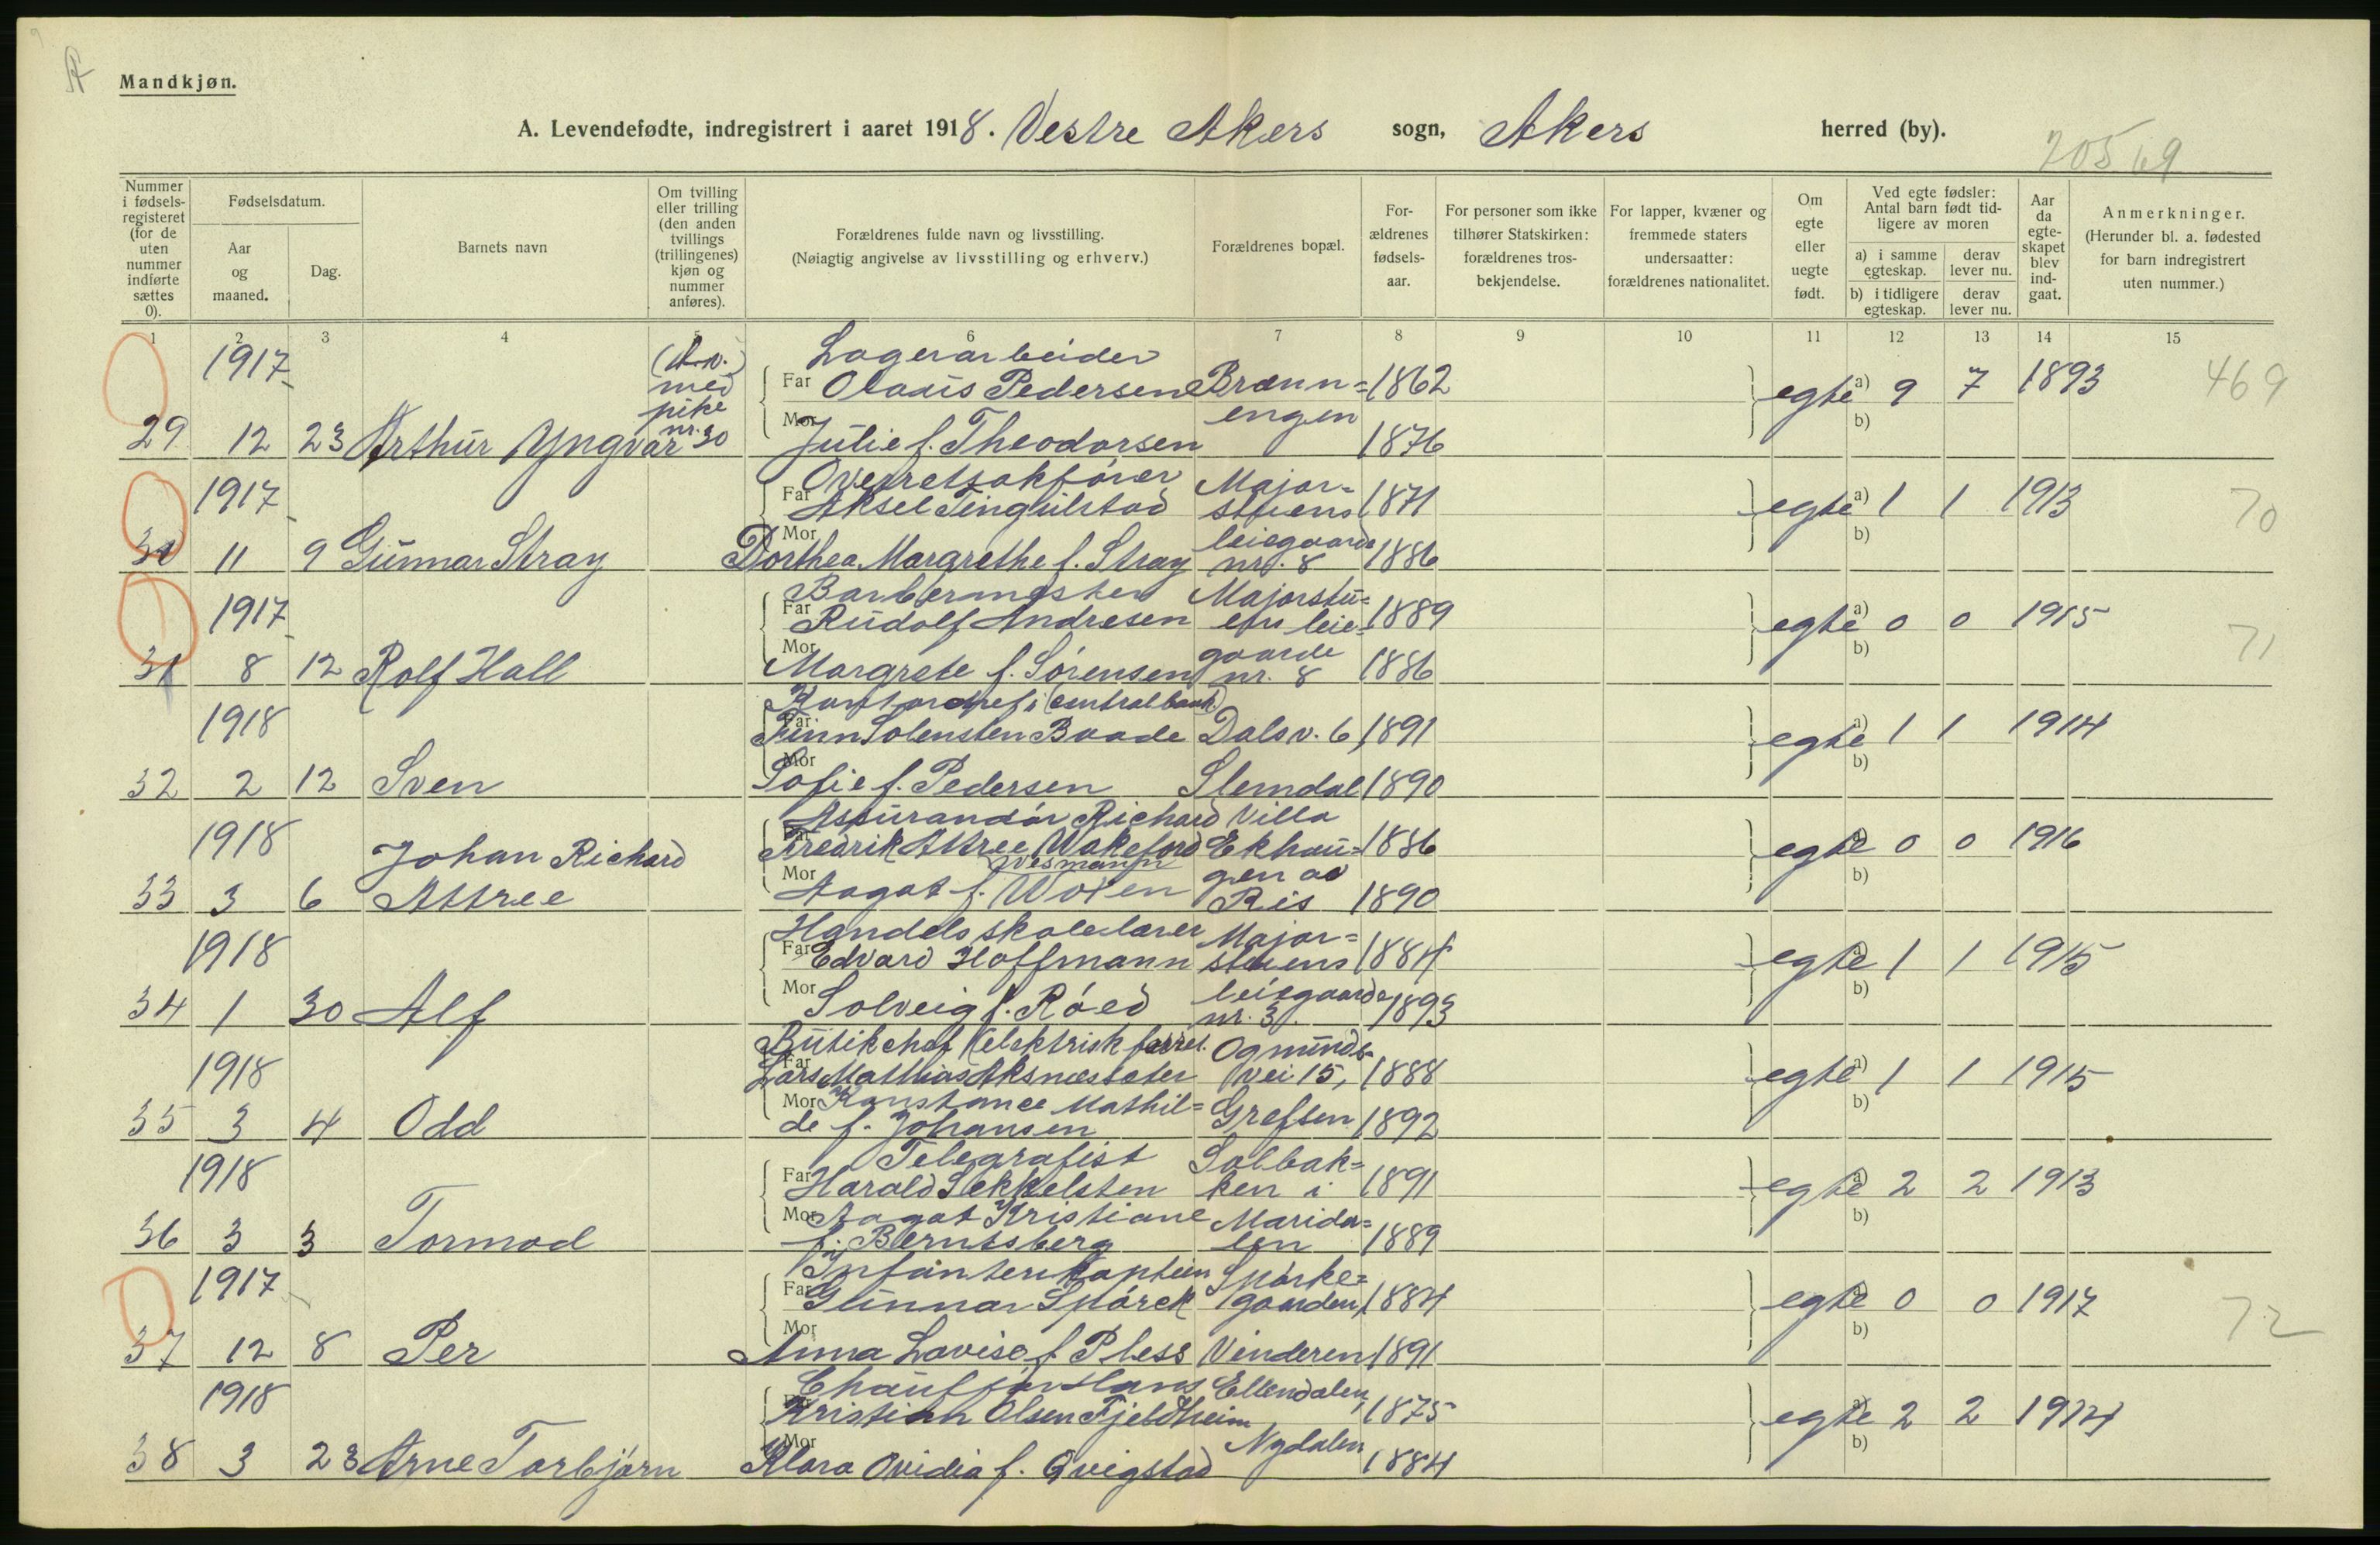 Mandkjøn.
A. Levendefødte, indregistrert i aaret 1918. Vestre Akers sogn, Akers herred (by).
205 69
Nummer i fødselsregisteret (for de uten nummer indførte sættes 0).
Fødselsdatum.
Aar og maaned.
Dag.
Barnets navn
Om tvilling eller trilling (den anden tvillings (trillingenes) kjøn og nummer anføres).
Forældrenes fulde navn og livsstilling.
(Nøiagtig angivelse av livsstilling og erhverv.)
Forældrenes bopæl.
Forældrenes fødselsaar.
For personer som ikke tilhører Statskirken: forældrenes trosbekjendelse.
For lapper, kvæner og fremmede staters undersaatter: forældrenes nationalitet.
Om egte eller uegte født.
Ved egte fødsler: Antal barn født tidligere av moren
a) i samme egteskap. derav lever nu.
b) i tidligere egteskap. derav lever nu.
Aar da egteskapet blev indgaat.
Anmerkninger.
(Herunder bl. a. fødested for barn indregistrert uten nummer.)
1 2 3 4 5 6 7 8 9 10 11 12 13 14 15
1917 med pike nr. 30 Lagerarbeider
Far Olaais Pedersen Brænn= 1862 egte a) 9 7 1893 469
29 12 23 Arthur Yngvar Mor Julie f. Theodorsen engen 1876 b)
1917 Overretsakfører Major=
Far Aksel Tingulstad stuens 1871 egte a) 1 1 1913 70
30 11 9 Gunnar Stray Mor Dorthea Margrethe f. Stray leiegaarde nr. 8 1886 b)
1917 Barbermester Majorstu=
Far Rudolf Andresen en leie= 1889 egte a) 0 0 1915 71
31 8 12 Rolf Hall Mor Margrete f. Sørensen gaarde nr. 8 1886 b)
1918 Kontorchef i (Centralbank)
Far Finn Solensten Baade Dalsv. 6, 1891 egte a) 1 1 1914
32 2 12 Sven Mor Sofie f. Pedersen Slemdal 1890 b)
1918 Assurandør Richard Villa
Far Fredrik Attree Wakeford Ekhau= 1886 egte a) 0 0 1916
33 3 6 Johan Richard Attree Mor Aagot f. gen av Ris 1890 b)
1918 Handelsskolelærer Major=
Far Edvard Hoffmann stuens 1884 egte a) 1 1 1915
34 1 30 Alf Mor Solveig f. Røed leiegaarde nr. 3. 1893 b)
1918 Butikchef (elektrisk forret. Ogmunds=
Far Lars Mathias Aksnessæter vei 15, 1888 egte a) 1 1 1915
35 3 4 Odd Mor Konstance Mathil= de f. Johansen Grefsen 1892 b)
1918 Telegrafist Solbak=
Far Harald Sekkelsten ken i 1891 egte a) 2 2 1913
36 3 3 Tormod Mor Aagot Kristiane f. Berntsberg Marida= len 1889 b)
1917 Infanterikaptein Spørke=
Far Gunnar Spørck gaarden, 1884 egte a) 0 0 1917 72
37 12 8 Per Mor Anna Lovise f. Pless Vinderen 1891 b)
1918 Chauffør Hans Ellendalen,
Kristian Olsen Fjeldheim 1875 egte a) 2 2 1914
38 3 23 Arne Torbjørn Mor Klara Ovidia f. Qvigstad Nydalen 1884 b)